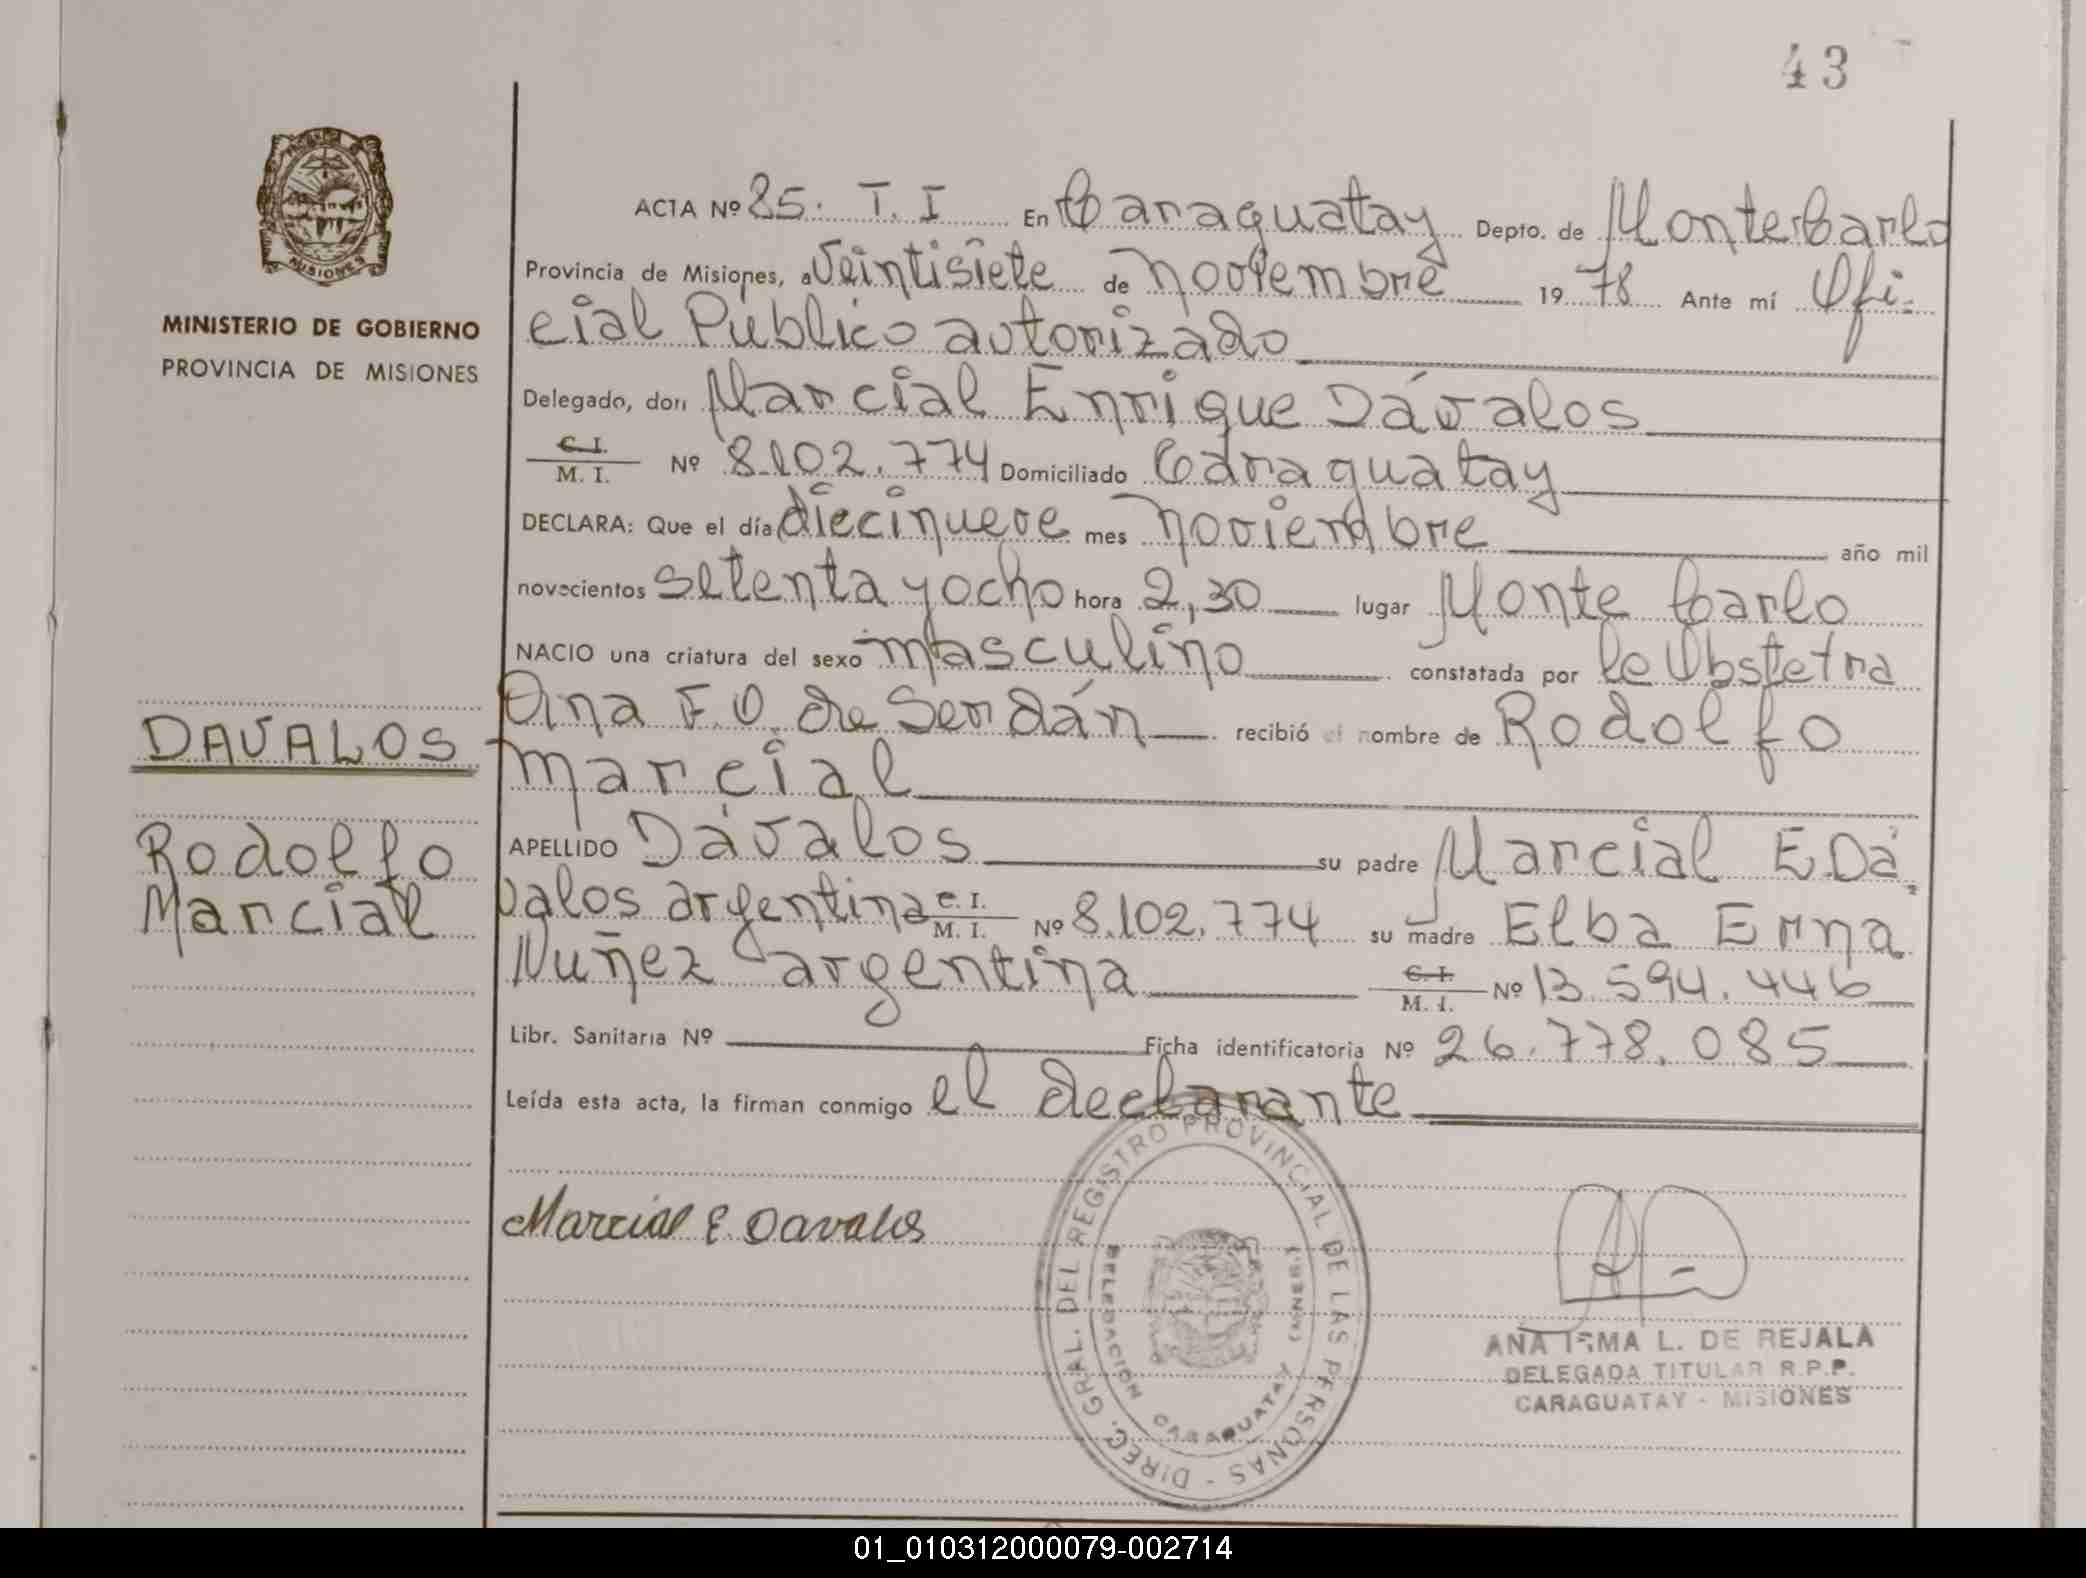 43
MINISTERIO DE GOBIERNO
PROVINCIA DE MISIONES
ACTA Nº 85. T. I En Caraguatay Depto. de Monte Carlo
Provincia de Misiones, a Veintisiete de noviembre 19 78 Ante mí Ofi-
cial Público autorizado
Delegado, don Marcial Enrique Dávalos
C. I.
M. I. Nº 8.102.774 Domiciliado Caraguatay
DECLARA: Que el día diecinueve mes noviembre año mil
novecientos setenta y ocho hora 2,30 lugar Monte Carlo
NACIO una criatura del sexo masculino constatada por la Obstetra
Ana F. O. de Serdán recibió el nombre de Rodolfo
Marcial
APELLIDO Dávalos su padre Marcial E. Dá
valos argentina C. I. M. I. Nº 8.102.774 su madre Elba Erna
Nuñez argentina C. I. M. I. Nº 13.594.446
Libr. Sanitaria Nº Ficha identificatoria Nº 26.778.085
Leída esta acta, la firman conmigo el declarante
DAVALOS
Rodolfo
Marcial
Marcial E. Davalos
DIREC. GRAL. DEL REGISTRO PROVINCIAL DE LAS PERSONAS -
DELEGACION CARAGUATAY (MSNES.)
ANA IRMA L. DE REJALA
DELEGADA TITULAR R.P.P.
CARAGUATAY - MISIONES
01_010312000079-002714